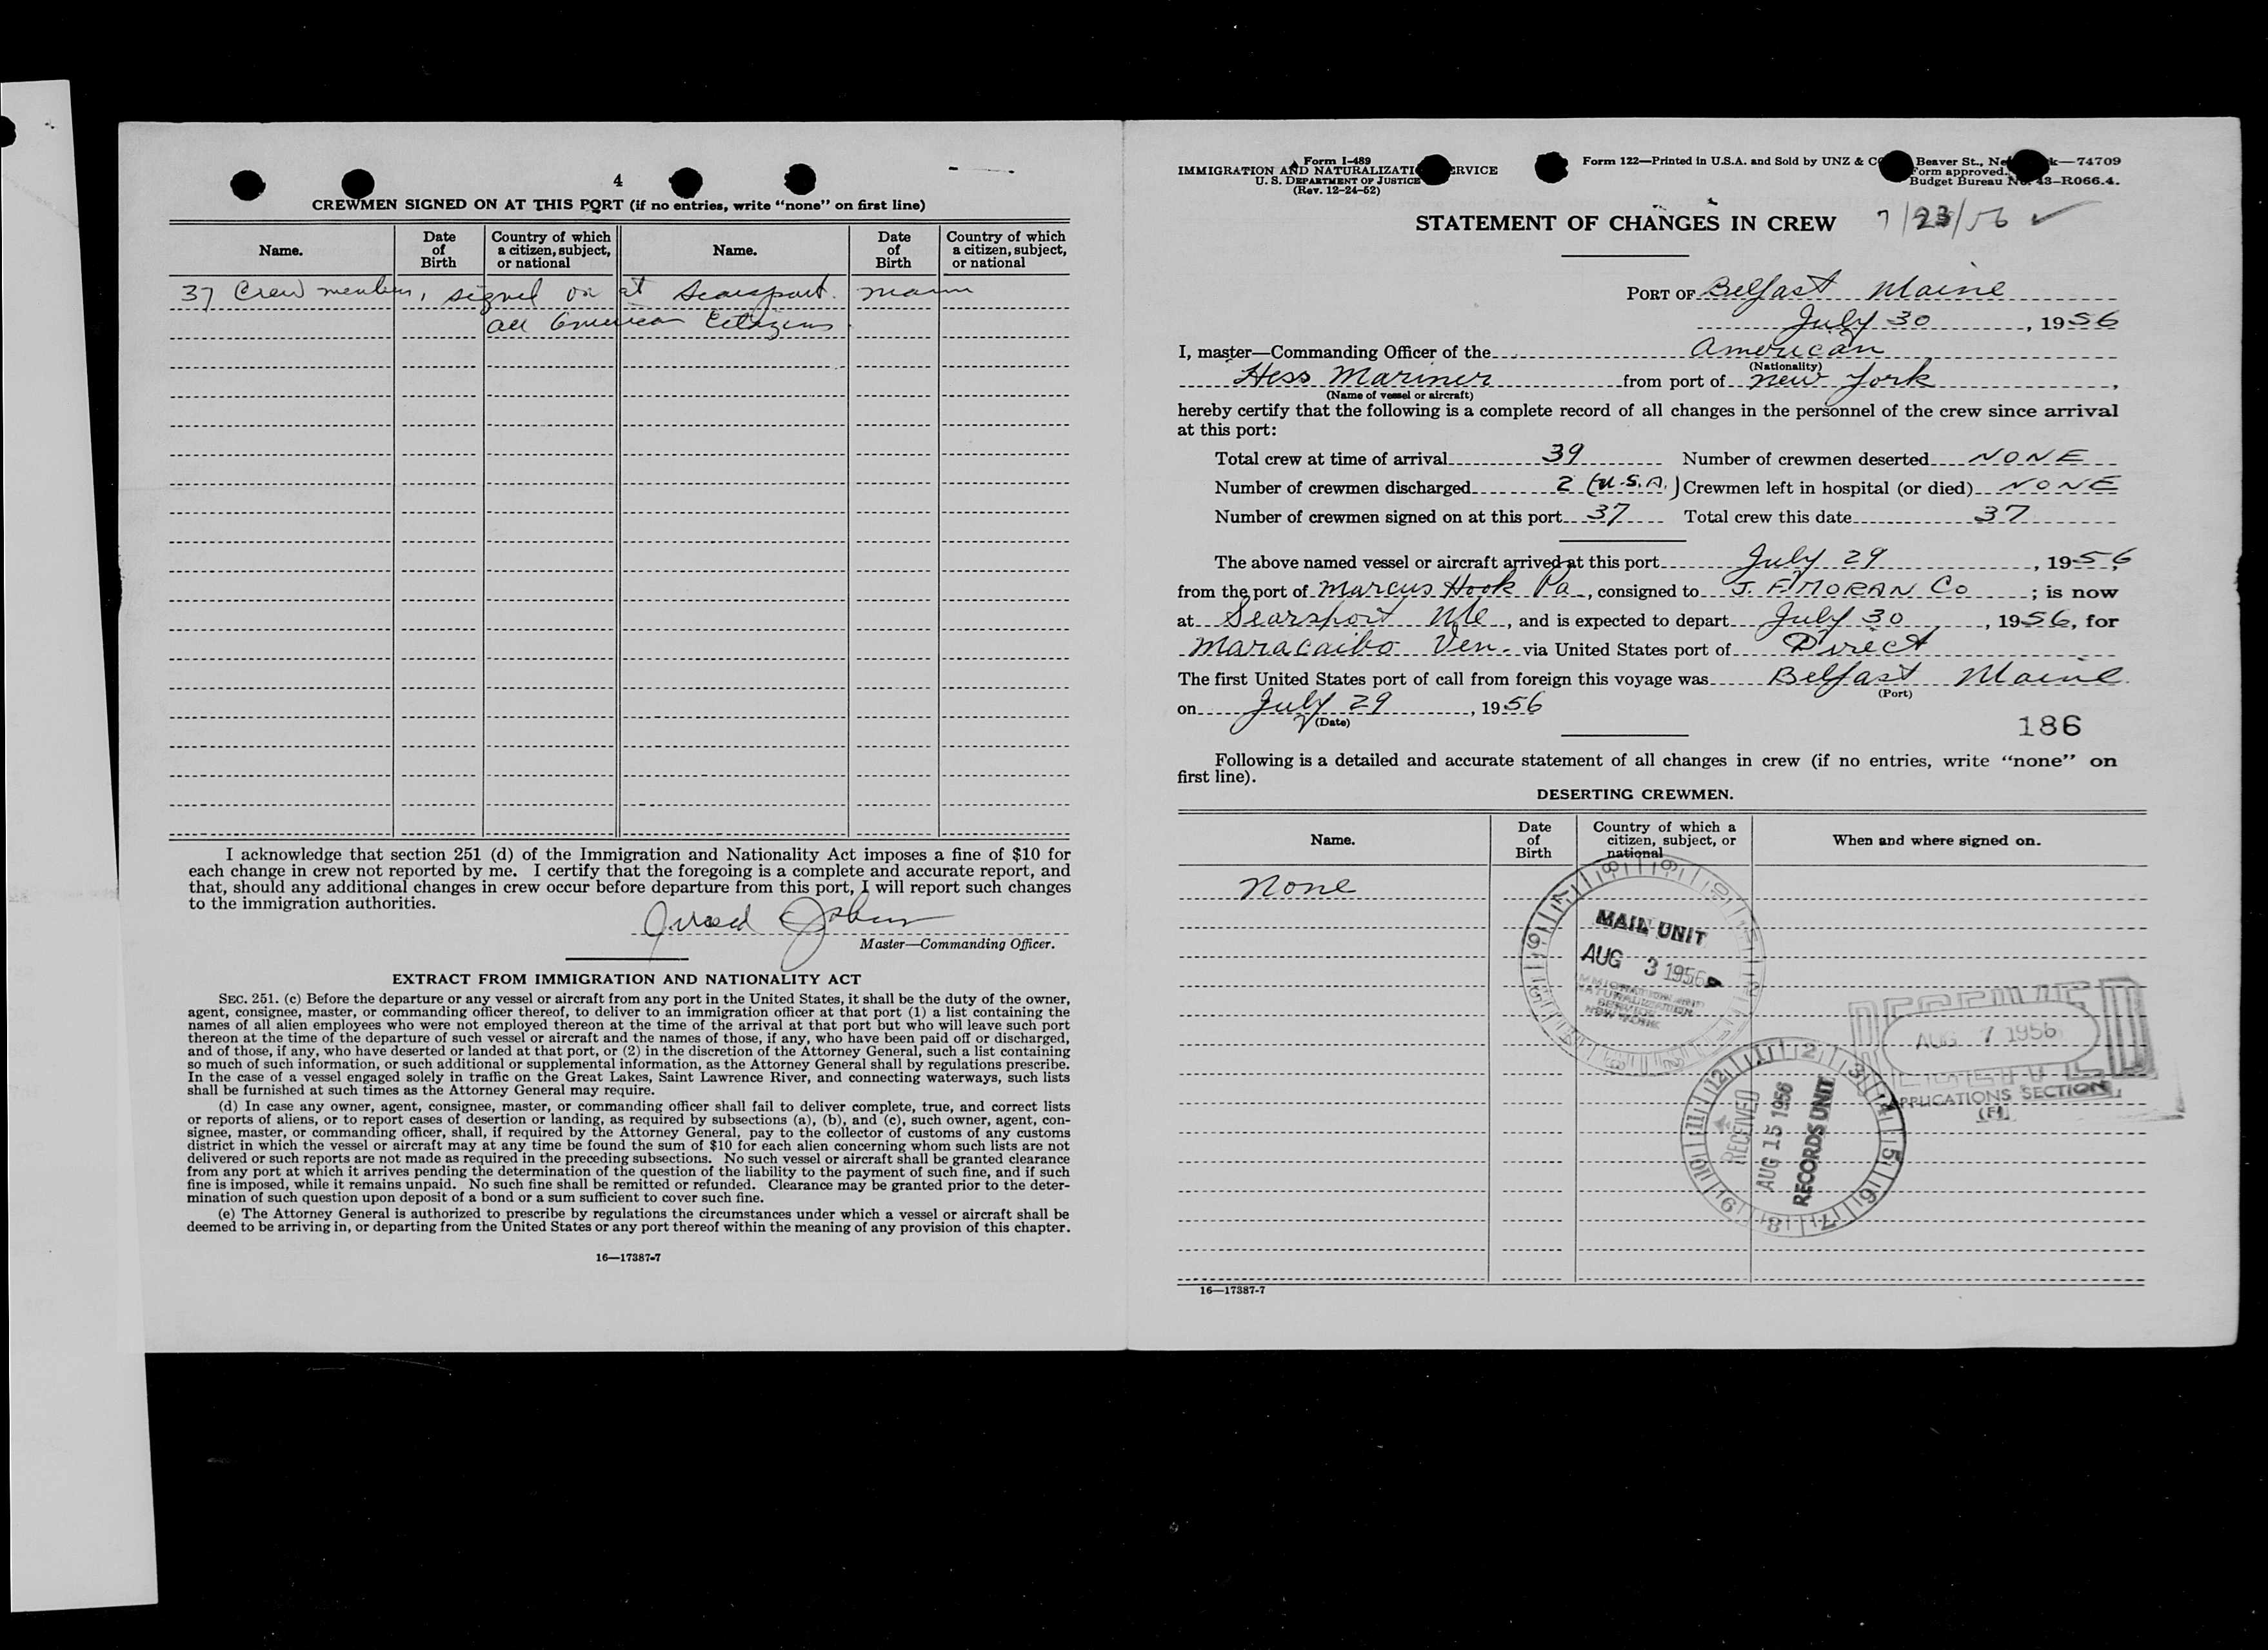 4
CREWMEN SIGNED ON AT THIS PORT (if no entries, write "none" on first line)
Name. Date of Birth Country of which a citizen, subject, or national Name. Date of Birth Country of which a citizen, subject, or national
37 Crew members, signed on at Searsport. Maine
all American Citizens
I acknowledge that section 251 (d) of the Immigration and Nationality Act imposes a fine of $10 for
each change in crew not reported by me. I certify that the foregoing is a complete and accurate report, and
that, should any additional changes in crew occur before departure from this port, I will report such changes
to the immigration authorities.
Master—Commanding Officer.
EXTRACT FROM IMMIGRATION AND NATIONALITY ACT
SEC. 251. (c) Before the departure or any vessel or aircraft from any port in the United States, it shall be the duty of the owner,
agent, consignee, master, or commanding officer thereof, to deliver to an immigration officer at that port (1) a list containing the
names of all alien employees who were not employed thereon at the time of the arrival at that port but who will leave such port
thereon at the time of the departure of such vessel or aircraft and the names of those, if any, who have been paid off or discharged,
and of those, if any, who have deserted or landed at that port, or (2) in the discretion of the Attorney General, such a list containing
so much of such information, or such additional or supplemental information, as the Attorney General shall by regulations prescribe.
In the case of a vessel engaged solely in traffic on the Great Lakes, Saint Lawrence River, and connecting waterways, such lists
shall be furnished at such times as the Attorney General may require.
(d) In case any owner, agent, consignee, master, or commanding officer shall fail to deliver complete, true, and correct lists
or reports of aliens, or to report cases of desertion or landing, as required by subsections (a), (b), and (c), such owner, agent, con-
signee, master, or commanding officer, shall, if required by the Attorney General, pay to the collector of customs of any customs
district in which the vessel or aircraft may at any time be found the sum of $10 for each alien concerning whom such lists are not
delivered or such reports are not made as required in the preceding subsections. No such vessel or aircraft shall be granted clearance
from any port at which it arrives pending the determination of the question of the liability to the payment of such fine, and if such
fine is imposed, while it remains unpaid. No such fine shall be remitted or refunded. Clearance may be granted prior to the deter-
mination of such question upon deposit of a bond or a sum sufficient to cover such fine.
(e) The Attorney General is authorized to prescribe by regulations the circumstances under which a vessel or aircraft shall be
deemed to be arriving in, or departing from the United States or any port thereof within the meaning of any provision of this chapter.
16—17387-7
Form I-489
IMMIGRATION AND NATURALIZATI RVICE
U. S. DEPARTMENT OF JUSTICE
(Rev. 12-24-52)
Form 122—Printed in U.S.A. and Sold by UNZ & C Beaver St., Ne k—74709
Form approved.
Budget Bureau No. 43-R066.4.
STATEMENT OF CHANGES IN CREW 7/23/56 ✓
PORT OF Belfast Maine
July 30, 1956
I, master—Commanding Officer of the American
(Nationality)
Hess Mariner from port of New York,
(Name of vessel or aircraft)
hereby certify that the following is a complete record of all changes in the personnel of the crew since arrival
at this port:
Total crew at time of arrival 39 Number of crewmen deserted NONE
Number of crewmen discharged 2 (U.S.A.) Crewmen left in hospital (or died) NONE
Number of crewmen signed on at this port 37 Total crew this date 37
The above named vessel or aircraft arrived at this port July 29, 1956
from the port of Marcus Hook Pa, consigned to J. F. MORAN Co; is now
at Searsport Me, and is expected to depart July 30, 1956, for
Maracaibo Ven. via United States port of Direct
The first United States port of call from foreign this voyage was Belfast Maine
(Port)
on July 29, 1956
(Date)
186
Following is a detailed and accurate statement of all changes in crew (if no entries, write "none" on
first line).
DESERTING CREWMEN.
Name. Date of Birth Country of which a citizen, subject, or national When and where signed on.
None
MAIL UNIT
AUG 3 1956
IMMIGRATION AND
NATURALIZATION
SERVICE
NEW YORK
RECEIVED
AUG 7 1956
APPLICATIONS SECTION
(F1)
RECEIVED
AUG 15 1956
RECORDS UNIT
16—17387-7